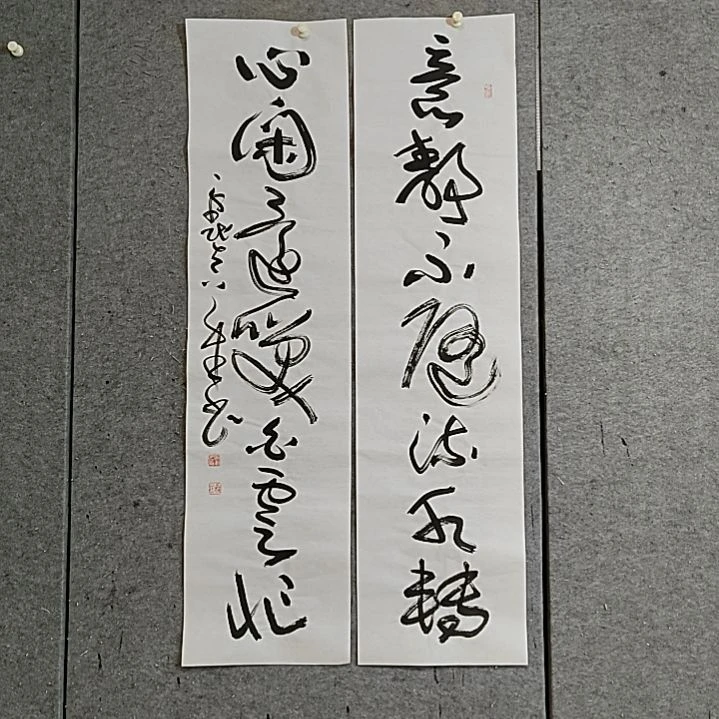 意静不随流水转
心闲还笑白云飞